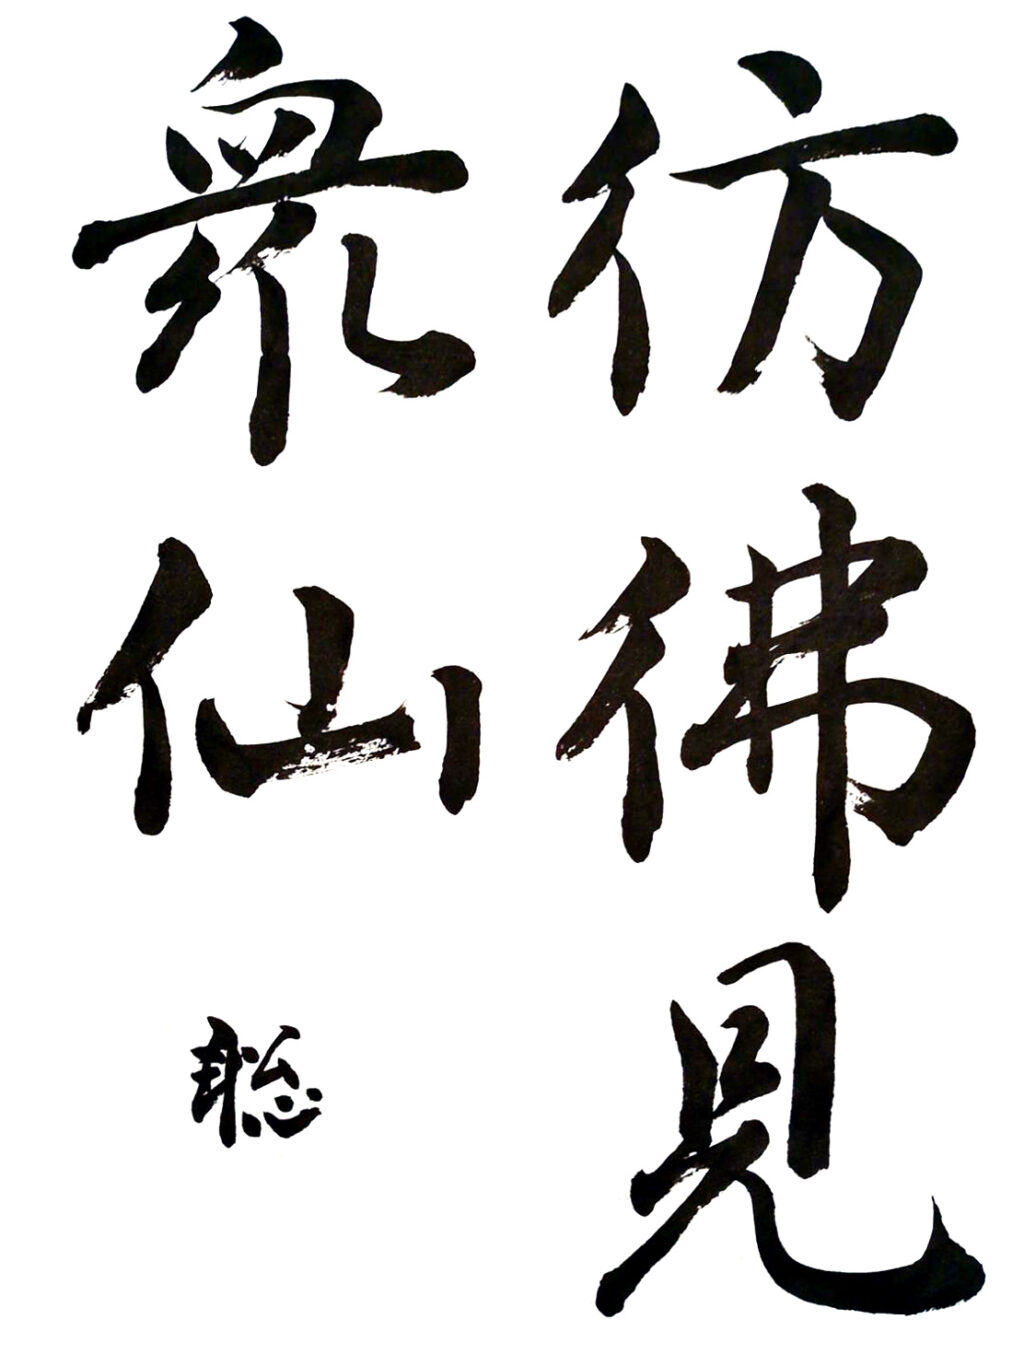 彷彿見
衆仙
聡